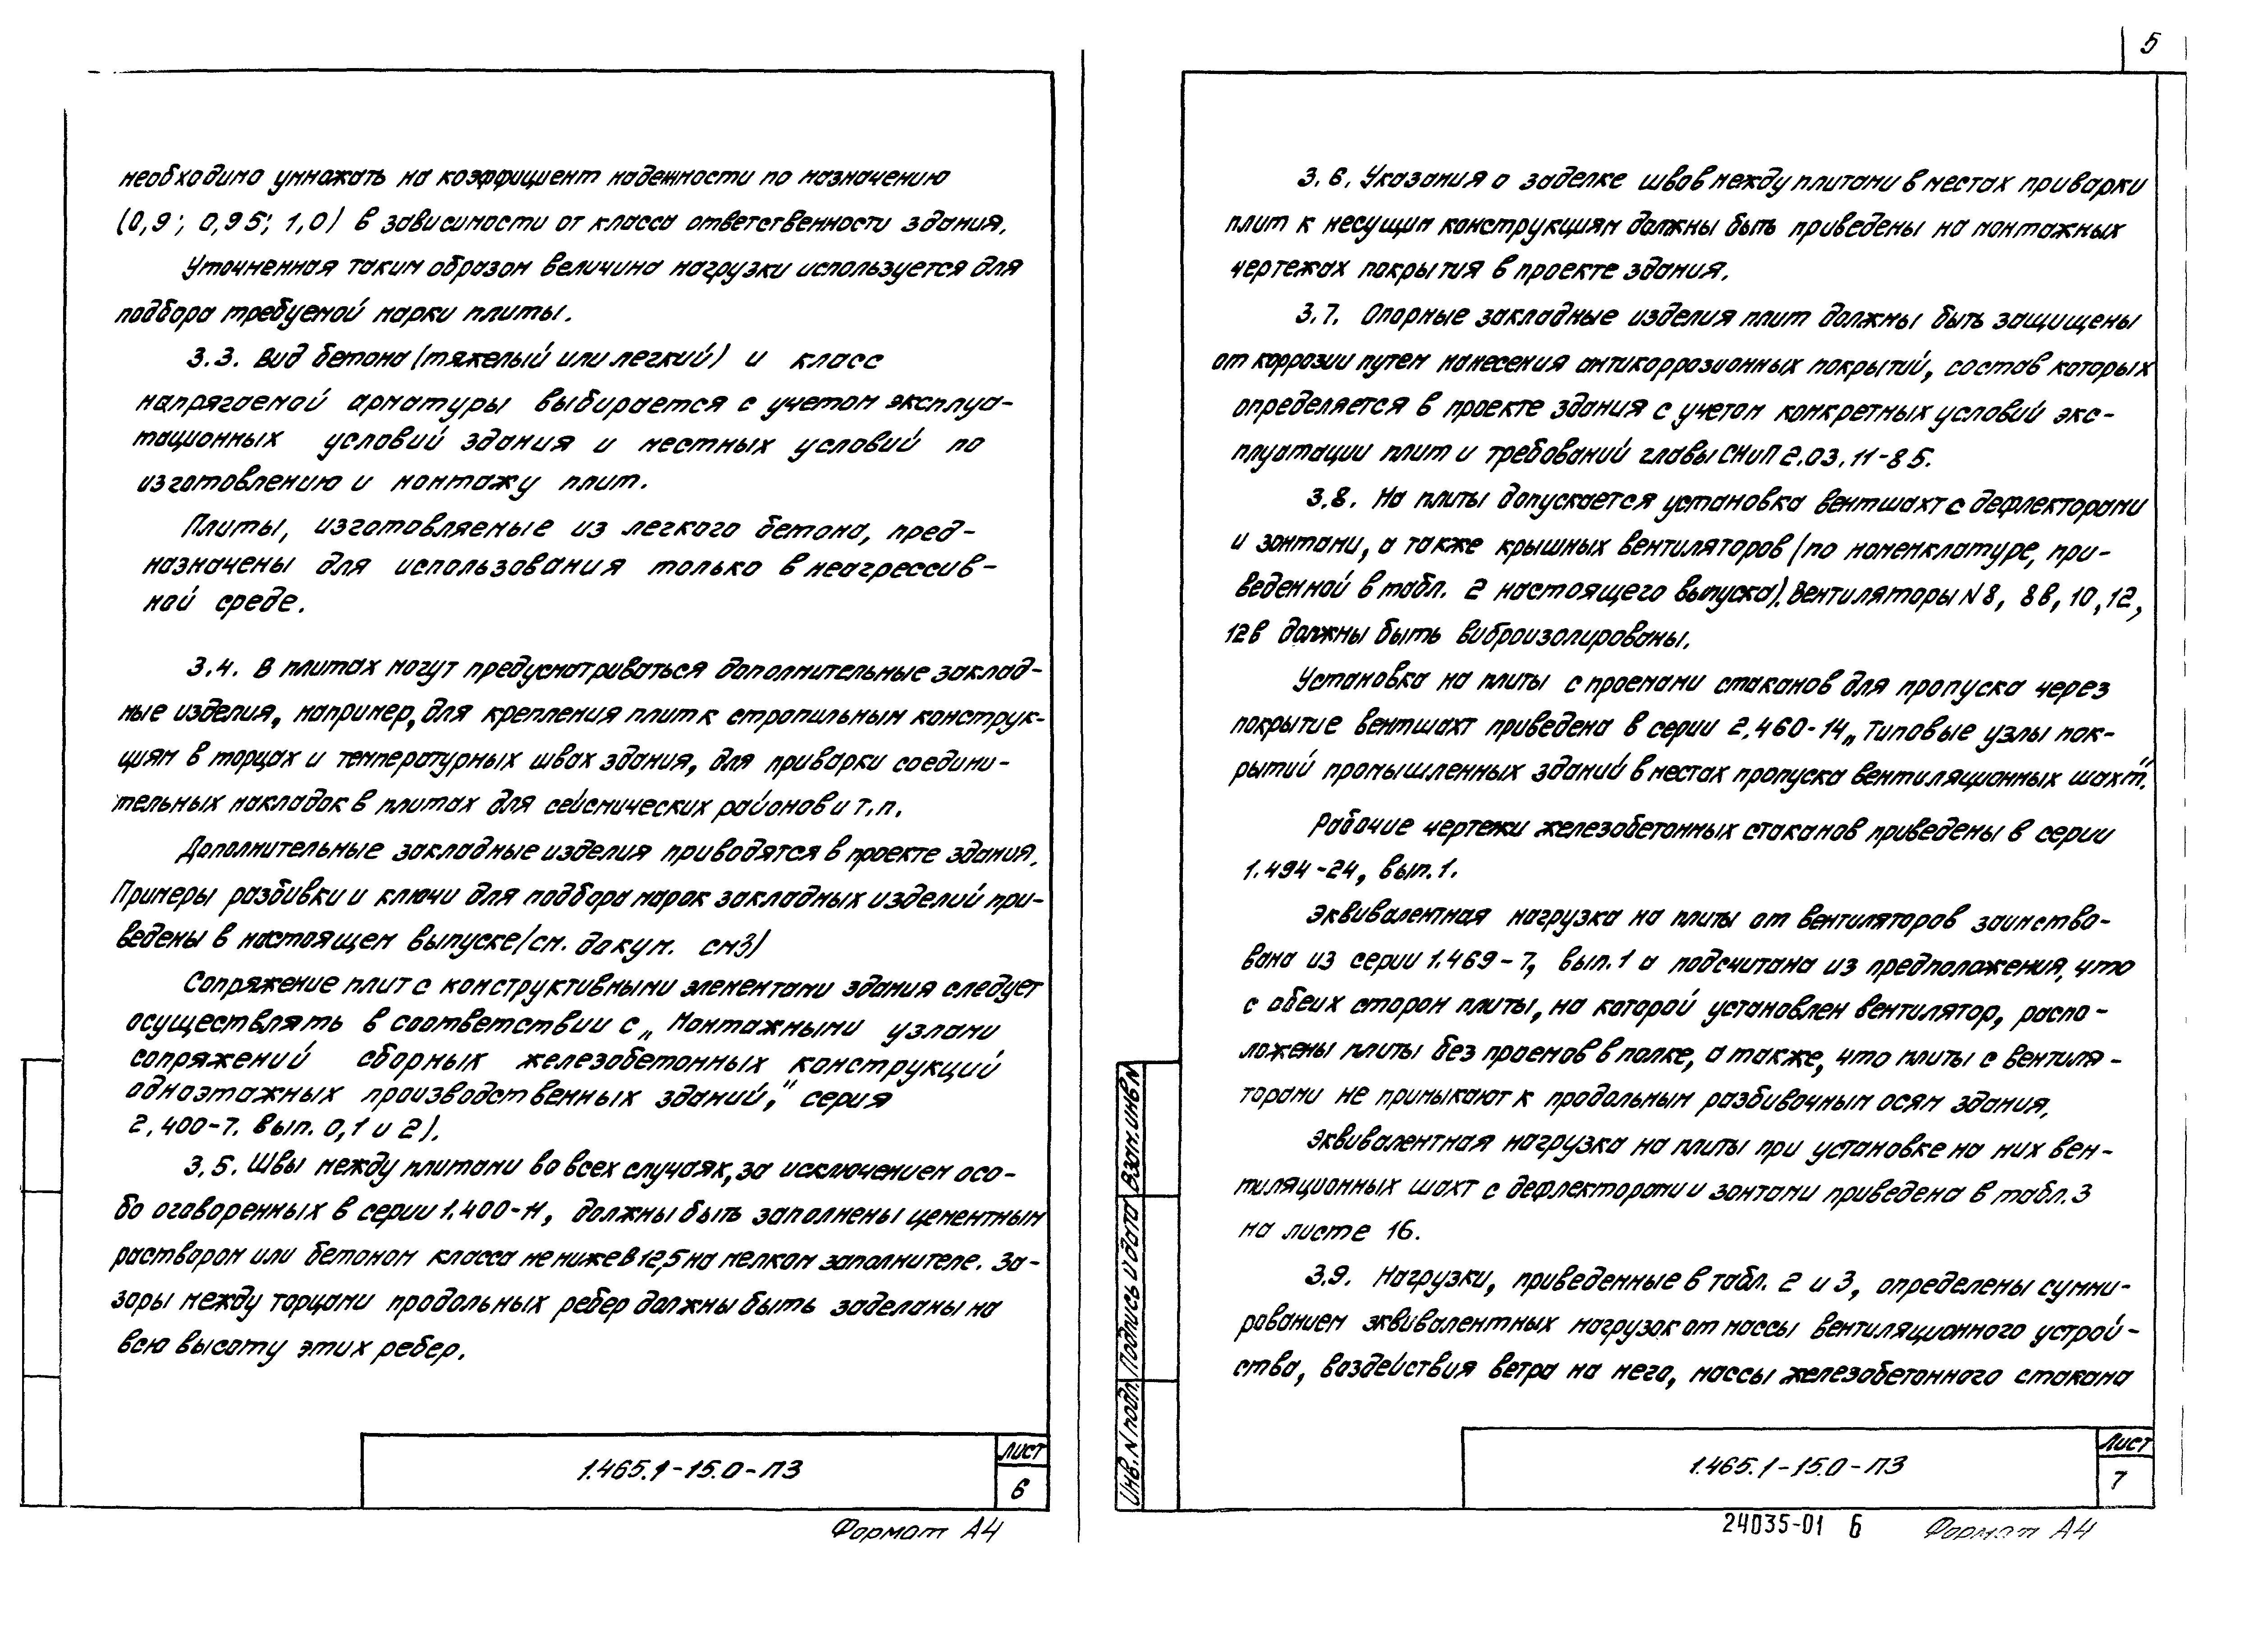 необходимо умножать на коэффициент надежности по назначению
(0,9; 0,95; 1,0) в зависимости от класса ответственности здания.
Уточненная таким образом величина нагрузки используется для
подбора требуемой марки плиты.
3.3. Вид бетона (тяжелый или легкий) и класс
напрягаемой арматуры выбирается с учетом эксплуа-
тационных условий здания и местных условий по
изготовлению и монтажу плит.
Плиты, изготовляемые из легкого бетона, пред-
назначены для использования только в неагрессив-
ной среде.
3.4. В плитах могут предусматриваться дополнительные заклад-
ные изделия, например, для крепления плит к стропильным конструк-
циям в торцах и температурных швах здания, для приварки соедини-
тельных накладок в плитах для сейсмических районов и т.п.
Дополнительные закладные изделия приводятся в проекте здания.
Примеры разбивки и ключи для подбора марок закладных изделий при-
ведены в настоящем выпуске (см. докум. см3)
Сопряжение плит с конструктивными элементами здания следует
осуществлять в соответствии с „Монтажными узлами
сопряжений сборных железобетонных конструкций
одноэтажных производственных зданий," серия
2.400-7. Вып. 0,1 и 2).
3.5. Швы между плитами во всех случаях, за исключением осо-
бо оговоренных в серии 1.400-11, должны быть заполнены цементным
раствором или бетоном класса не ниже В 12,5 на мелком заполнителе. За-
зоры между торцами продольных ребер должны быть заделаны на
всю высоту этих ребер.
1.465.1-15.0-ПЗ
Лист
6
Формат А4
5
3.6. Указания о заделке швов между плитами в местах приварки
плит к несущим конструкциям должны быть приведены на монтажных
чертежах покрытия в проекте здания.
3.7. Опорные закладные изделия плит должны быть защищены
от коррозии путем нанесения антикоррозионных покрытий, состав которых
определяется в проекте здания с учетом конкретных условий экс-
плуатации плит и требований главы СНиП 2.03.11-85.
3.8. На плиты допускается установка вентшахт с дефлекторами
и зонтами, а также крышных вентиляторов (по номенклатуре, при-
веденной в табл. 2 настоящего выпуска). Вентиляторы N 8, 8в, 10, 12,
12в должны быть виброизолированы.
Установка на плиты с проемами стаканов для пропуска через
покрытие вентшахт приведена в серии 2.460-14 „Типовые узлы пок-
рытий промышленных зданий в местах пропуска вентиляционных шахт".
Рабочие чертежи железобетонных стаканов приведены в серии
1.494-24, вып.1.
Эквивалентная нагрузка на плиты от вентиляторов заимство-
вана из серии 1.469-7, вып.1 и подсчитана из предположения, что
с обеих сторон плиты, на которой установлен вентилятор, распо-
ложены плиты без проемов в полке, а также, что плиты с вентиля-
торами не примыкают к продольным разбивочным осям здания.
Эквивалентная нагрузка на плиты при установке на них вен-
тиляционных шахт с дефлекторами и зонтами приведена в табл. 3
на листе 16.
3.9. Нагрузки, приведенные в табл. 2 и 3, определены сумми-
рованием эквивалентных нагрузок от массы вентиляционного устрой-
ства, воздействия ветра на него, массы железобетонного стакана
Взам.инв N
Подпись и дата
Инв. N подл.
1.465.1-15.0-ПЗ
Лист
7
24035-01 6
Формат А4